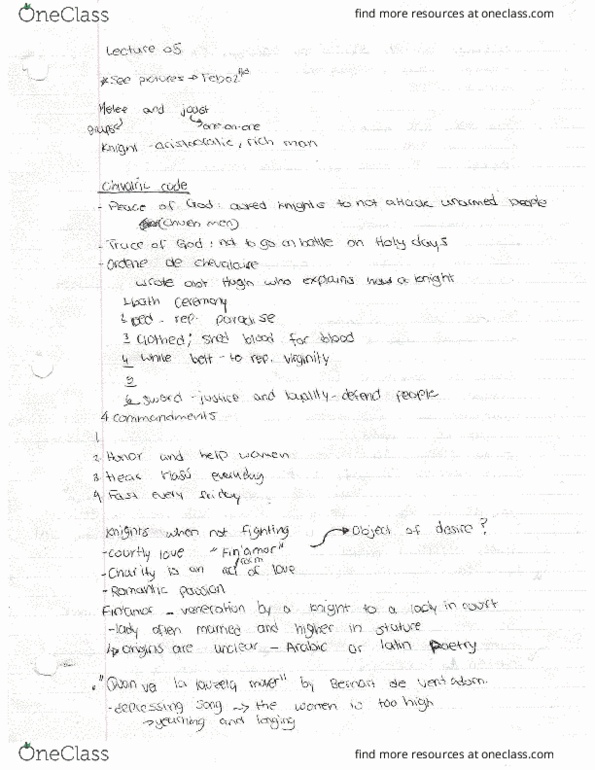 OneClass
find more resources at oneclass.com
Lecture 05
*See pictures → Feb 02nd
Melee and joust
groups
one-on-one
Knight - aristocratic, rich man
Chivalric code
- Peace of God: asked knights to not attack unarmed people
(church men)
- Truce of God: not to go on battle on Holy days
- Ordene de chevalaire
wrote abt Hugh who explains how a knight
1 bath ceremony
2 bed - rep. paradise
3 Clothed; shed blood for blood
4 while belt - to rep. virginity
5
6 sword - justice and loyality - defend people
4 commandments
1.
2. Honor and help women
3. Hear Mass everyday
4. Fast every friday
Knights when not fighting
Object of desire?
- courtly love "Fin'amor"
- Charity is an act of love
form
- Romantic passion
Fin'amor - veneration by a knight to a lady in court
- lady often married and higher in stature
↳ origins are unclear - Arabic or latin Poetry
• "Quan vei la lauzeta mover" by Bernart de Ventadorn.
- depressing song → the women is too high
→ yearning and longing
OneClass
find more resources at oneclass.com